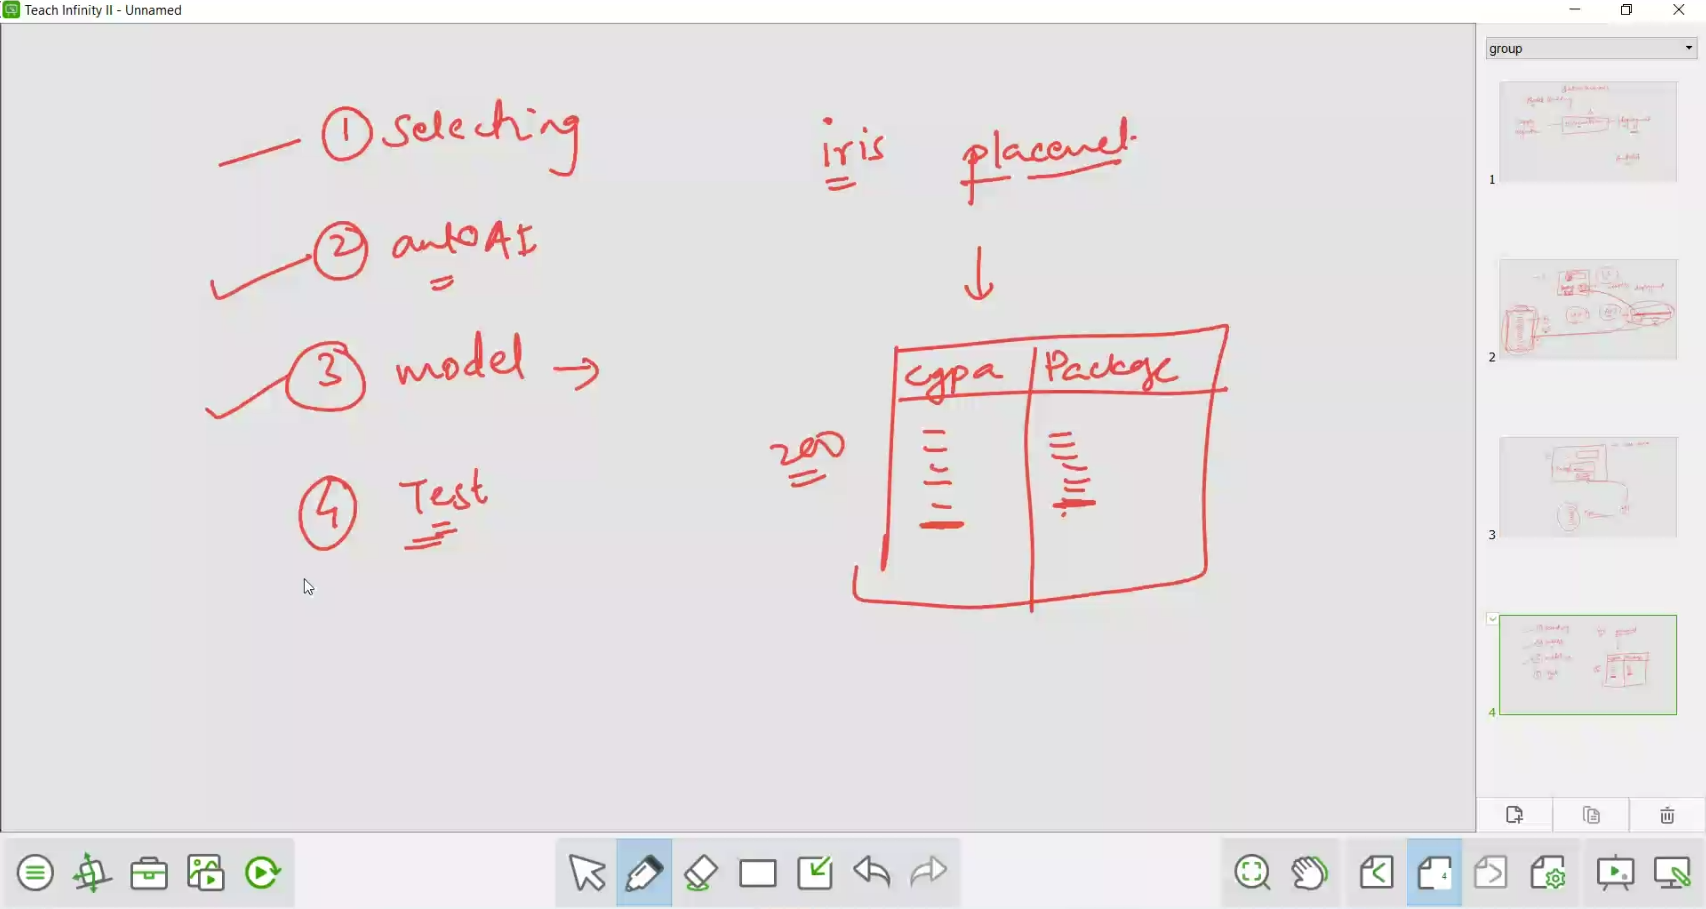 Teach Infinity II - Unnamed
group
1 selecting
2 autoAI
3 model →
4 Test
iris placenet
↓
cgpa Package
200
1
2
3
4
4